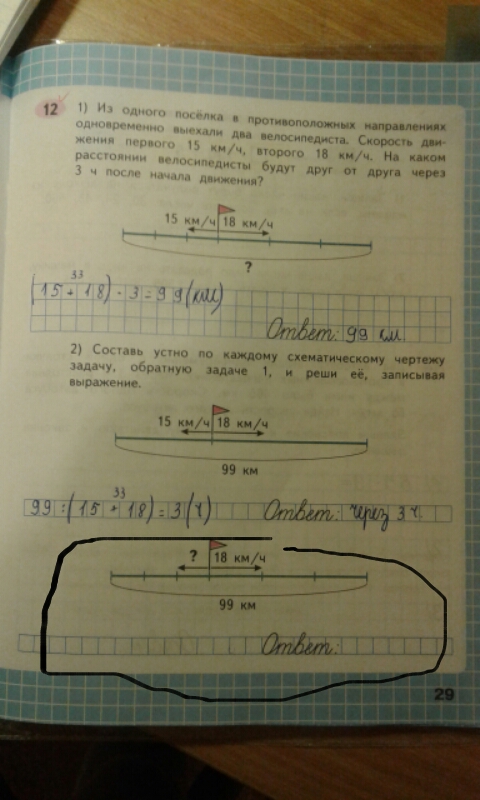 12 1) Из одного посёлка в противоположных направлениях
одновременно выехали два велосипедиста. Скорость дви-
жения первого 15 км/ч, второго 18 км/ч. На каком
расстоянии велосипедисты будут друг от друга через
3 ч после начала движения?
15 км/ч 18 км/ч
?
33
(15+18)·3=99(км)
Ответ: 99 км.
2) Составь устно по каждому схематическому чертежу
задачу, обратную задаче 1, и реши её, записывая
выражение.
15 км/ч 18 км/ч
99 км
33
99:(15+18)=3(ч) Ответ: через 3 ч.
? 18 км/ч
99 км
Ответ:
29